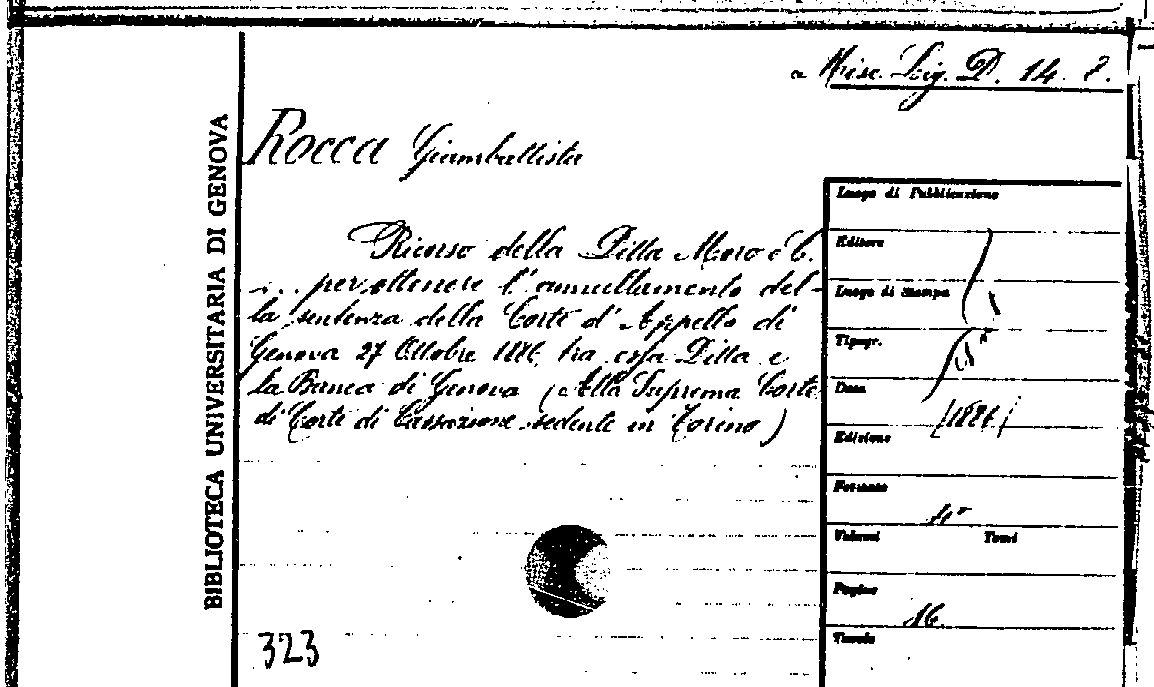 a Misc. Lig. D. 14. 8.
BIBLIOTECA UNIVERSITARIA DI GENOVA
Rocca Giambattista
Ricorso della Ditta Moro e C.
... per ottenere l'annullamento del-
la sentenza della Corte d'Appello di
Genova 27 Ottobre 1886, tra essa Ditta e
la Banca di Genova (Alla Suprema Corte
di Corte di Cassazione sedente in Torino)
323
Luogo di Pubblicazione
Editore
Luogo di Stampa
Tipogr.
Data
[1886]
Edizione
Formato
4°
Volumi Tomi
Pagine
16
Tavole